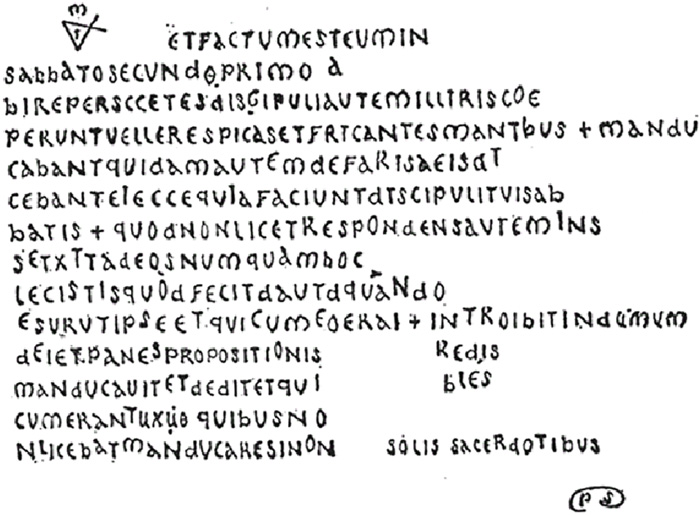 M
T
ETFACTUMESTEUMIN
SABBATOSECUNDOPRIMO A
BIREPERSCCETESDISGIPULIAUTEMILLIRISCOE
PERUNTVELLERESPICASETFRTCANTESMANTBUS + MANDU
CABANTQUIDAMAUTEMDEFARISAEISDT
CEBANTELECCEQUIAFACIUNTDTSCIPULITVISAB
BATIS + QUODNONLICETRESPONDENSAUTEMINS
SETXTTADEOSNUMQUAMBOC
LECISTISQUODFECITDAUTDQUANDO
ESURUTIPSEETQUICUMEOERAI + INTROIBITINDUMUM
DEIETPANESPROPOSITIONIS REDIS
MANDUCAUITETDEDITETQUI BLES
CUMERANTUXUO QUIBUSNO
NLICEBATMANDUCARESINON SOLIS SACERDOTIBUS
PS